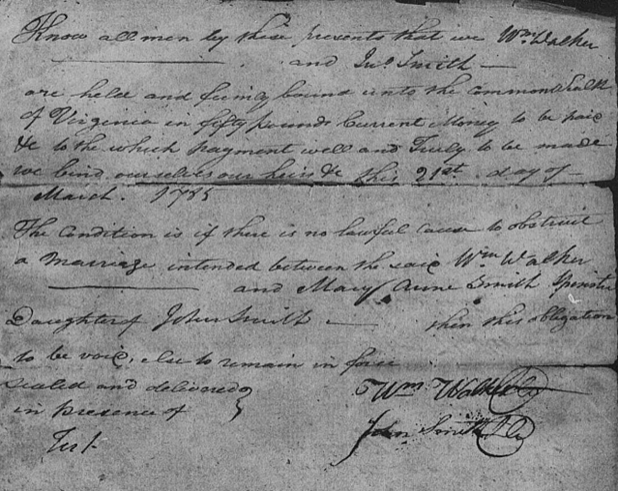 Know all men by these presents that we Wm. Walker
and Jno. Smith
are held and firmly bound unto the commonwealth
of Virginia in fifty pounds Current Money to be paid
&c to the which payment well and Truly to be made
we bind ourselves our heirs &c this 21st. day of
March. 1785
The Condition is if there is no lawful cause to obstruct
a Marriage intended between the said Wm Walker
and Mary Anne Smith Spinster
Daughter of John Smith then this obligation
to be void, else to remain in force
sealed and delivered
in presence of
Wm. Walker
John Smith